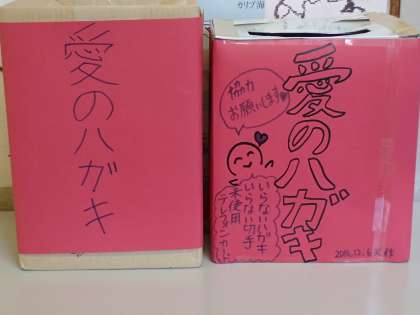 カリブ海
愛のハガキ
愛のハガキ
協力
お願いします
いらないハガキ
いらない切手
未使用
テレフォンカード